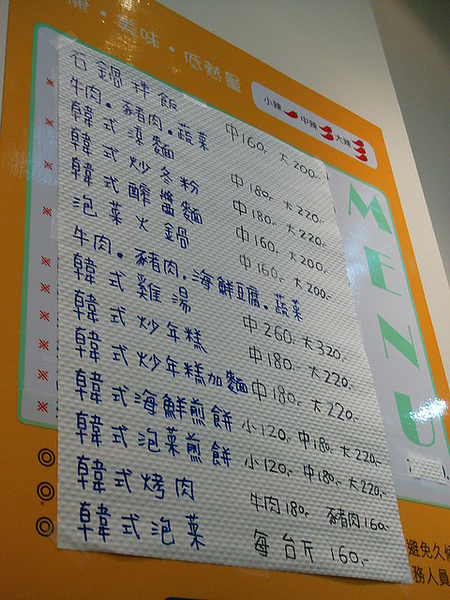 康・美味・低熱量
小辣 中辣 大辣
石鍋拌飯 中160.- 大200.-
牛肉。豬肉。蔬菜
韓式涼麵 中180.- 大220.-
韓式炒冬粉 中180.- 大220.-
韓式醡醬麵 中160.- 大200.-
泡菜火鍋 中160.- 大200.-
牛肉。豬肉.海鮮豆腐.蔬菜
韓式雞湯 中260.- 大320.-
韓式炒年糕 中180.- 大220.-
韓式炒年糕加麵 中180.- 大220.-
韓式海鮮煎餅 小120.- 中180.- 大220.-
韓式泡菜煎餅 小120.- 中180.- 大220.-
韓式烤肉 牛肉180.- 豬肉160.-
韓式泡菜 每台斤 160.-
MENU
避免久候
務人員